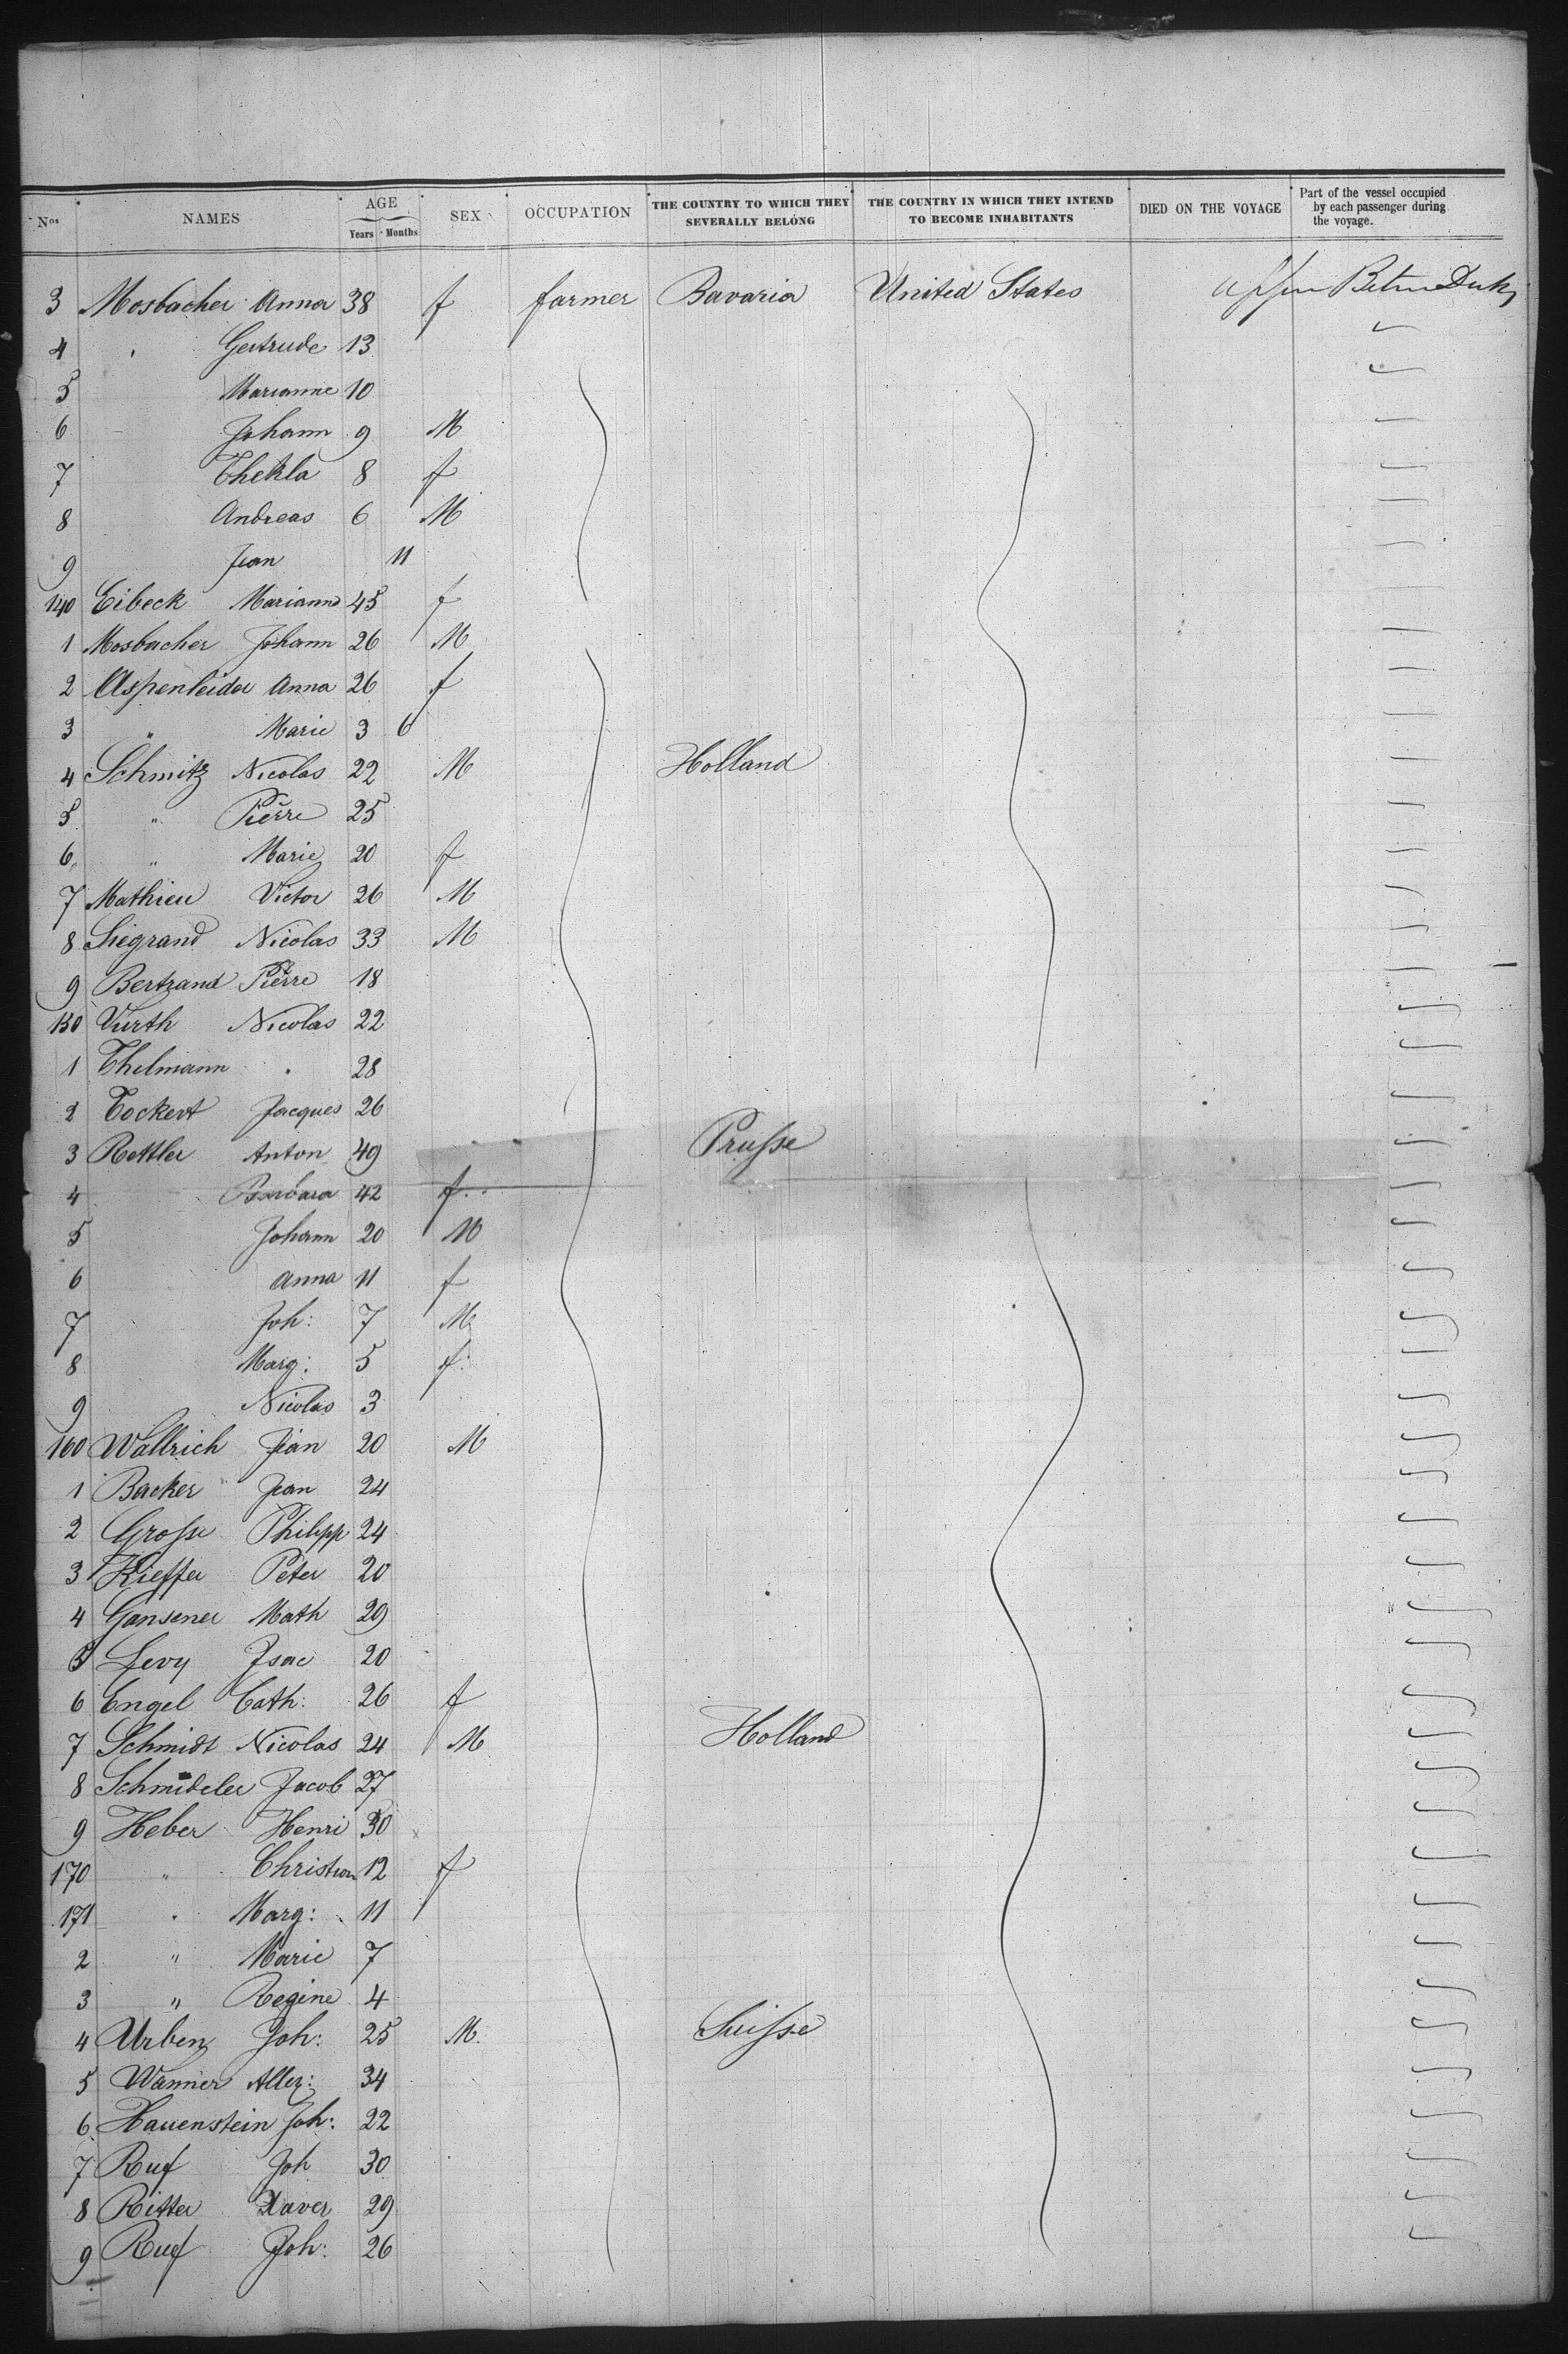 Nos NAMES AGE Years Months SEX OCCUPATION THE COUNTRY TO WHICH THEY SEVERALLY BELONG THE COUNTRY IN WHICH THEY INTEND TO BECOME INHABITANTS DIED ON THE VOYAGE Part of the vessel occupied by each passenger during the voyage.
3 Mosbacher Anna 38 f farmer Bavaria United States
4 Gertrude 13
5 Marianne 10
6 Johann 9 M
7 Thekla 8 f
8 Andreas 6 M
9 Jean 11
140 Eibeck Marianne 45 f
1 Mosbacher Johann 26 M
2 Aspenleider Anna 26 f
3 " Marie 3 6
4 Schmitz Nicolas 22 M Holland
5 " Pierre 25
6 " Marie 20 f
7 Mathieu Victor 26 M
8 Siegrand Nicolas 33 M
9 Bertrand Pierre 18
150 Vurth Nicolas 22
1 Thelmann " 28
2 Tockert Jacques 26
3 Rettler Anton 49 Prusse
4 Barbara 42 f
5 Johann 20 M
6 Anna 11 f
7 Joh: 7 M
8 Marg: 5 f
9 Nicolas 3
160 Wallrich Jean 20 M
1 Backer Jean 24
2 Grosse Philipp 24
3 Kieffer Peter 20
4 Gansener Math 29
5 Levy Isac 20
6 Engel Cath: 26 f
7 Schmidt Nicolas 24 M Holland
8 Schmideler Jacob 27
9 Heber Henri 30
170 " Christian 12 f
171 " Marg: 11
2 " Marie 7
3 " Regine 4
4 Urben Joh: 25 M. Suisse
5 Wanner Allex: 34
6 Hauenstein Joh: 22
7 Ruf Joh 30
8 Ritter Xaver 29
9 Ruf Joh: 26